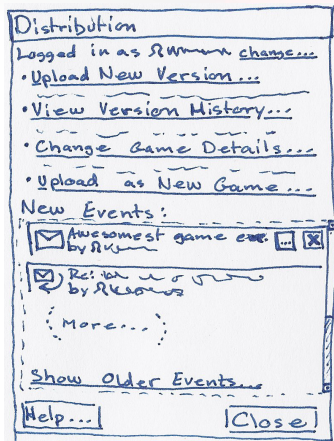 Distribution
Logged in as change...
• Upload New Version...
• View Version History...
• Change Game Details...
• Upload as New Game...
New Events:
Awesomest game ... X
by
Re:
by
(More...)
Show Older Events...
Help... Close